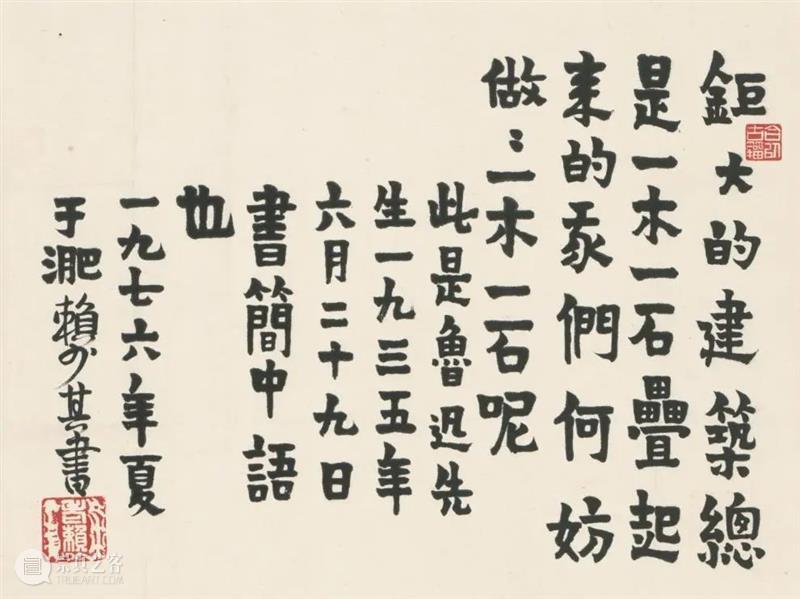 鉅大的建築總
是一木一石疊起
来的我們何妨
做：一木一石呢
此是魯迅先
生一九三五年
六月二十九日
書簡中語
也
一九七六年夏
于淝賴少其書
崇真艺客
TRUEART.COM